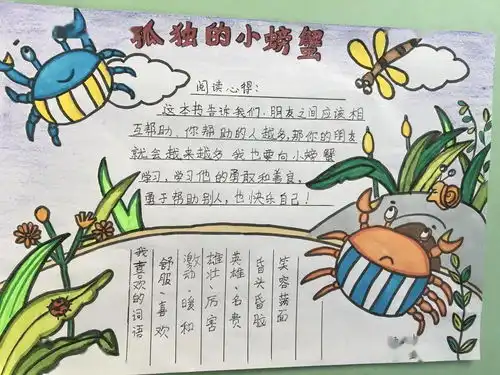 孤独的小螃蟹
阅读心得：
这本书告诉我们，朋友之间应该相
互帮助，你帮助的人越多，那你的朋友
就会越来越多，我也要向小螃蟹
学习，学习他的勇敢和善良，
勇于帮助别人，也快乐自己！
我喜欢的词语
舒服、喜欢
激动、暖和
雄壮、厉害
英雄、名贵
昏头昏脑
笑容满面